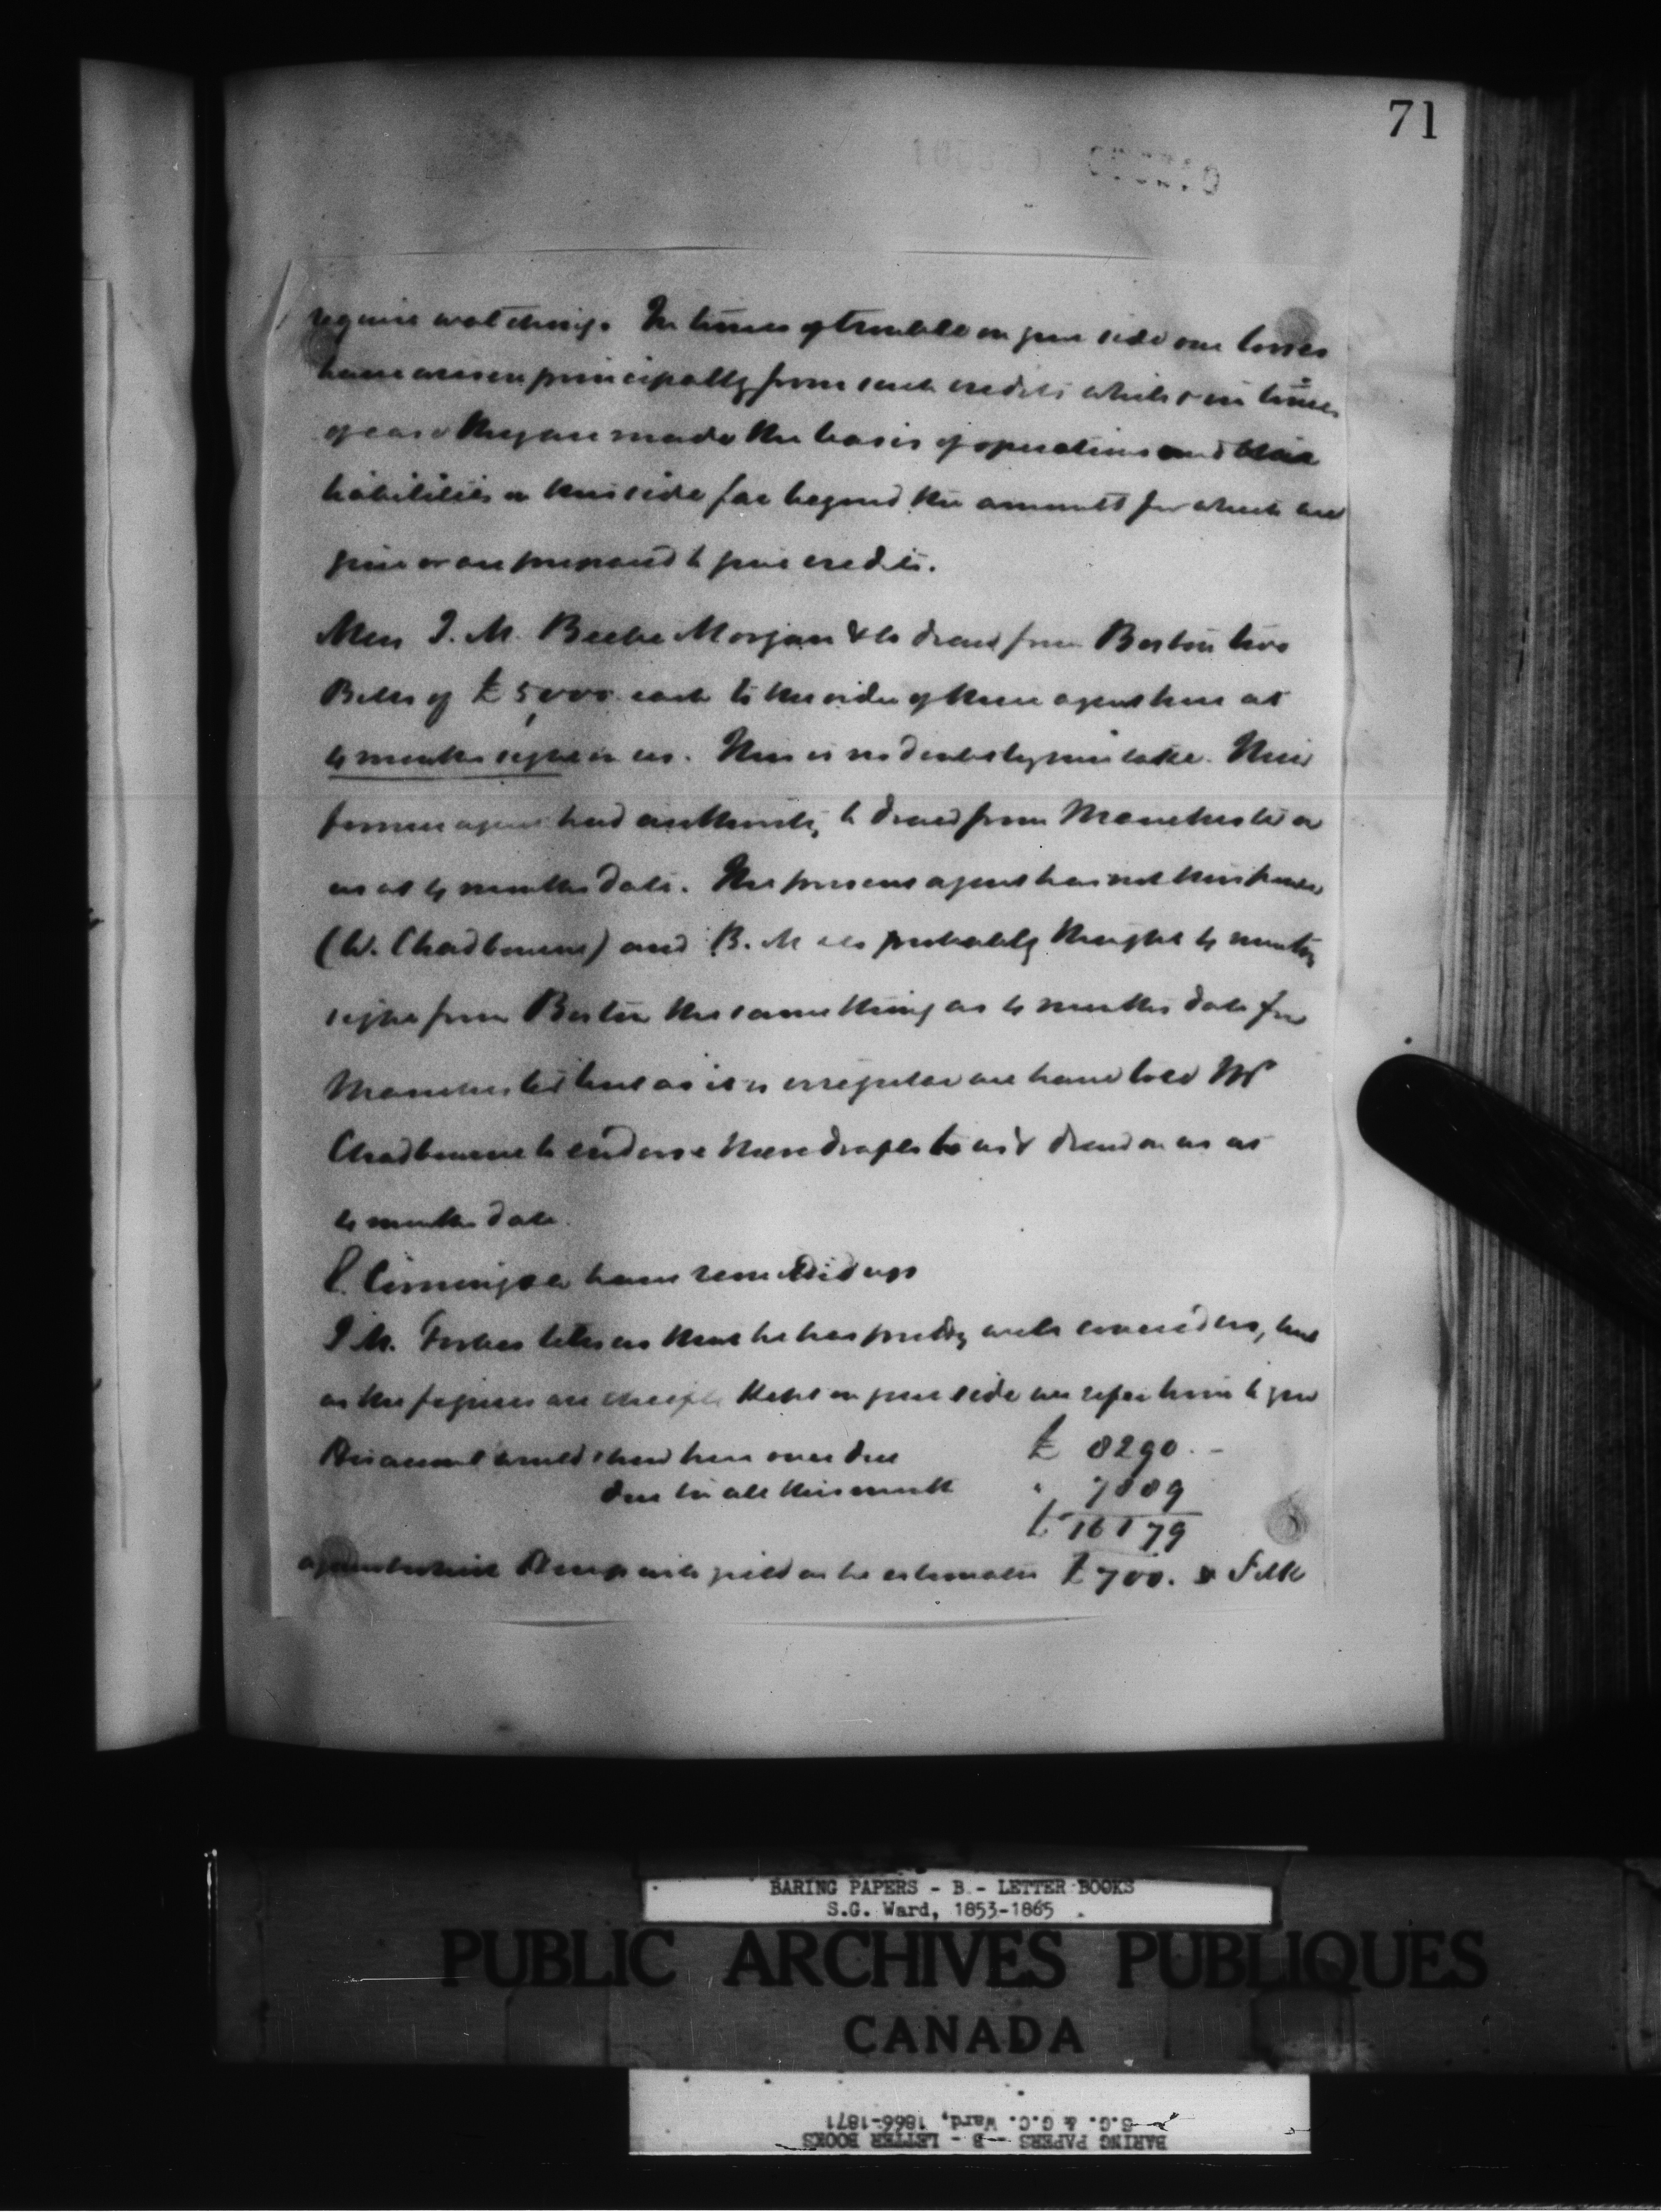 71
require watching. In times of trouble on your side our losses
have arisen principally from such credits which in times
of ease they are made the basis of operations and
liabilities on this side far beyond the amount for which we
give or are prepared to give credits.
Mess J. M. Beebe Morgan & Co drew from Boston two
Bills of £5,000 each to the order of their agent here at
4 months sight on us. This is no doubt by mistake. Their
former agent had authority to draw from Manchester on
us at 4 months date. The present agent has not this power
(W. Chadbourne) and B. M & Co probably thought 4 months
sight from Boston the same thing as 4 months date from
Manchester but as it is irregular we have told Mr
Chadbourne to endorse these drafts to us & draw on us at
4 months date.
J. M. Forbes tells us that he has pretty well covered us, but
as the figures are chiefly kept on your side we refer him to you
His account would show here over due £ 8290. -
due in all this month " 7889
£ 16179
against which Hemp will yield as he estimates £ 700. Silk
BARING PAPERS - B - LETTER BOOKS
S.G. Ward, 1853-1865
PUBLIC ARCHIVES PUBLIQUES
CANADA
BARING PAPERS - B - LETTER BOOKS
S.G. & G.C. Ward, 1866-1871